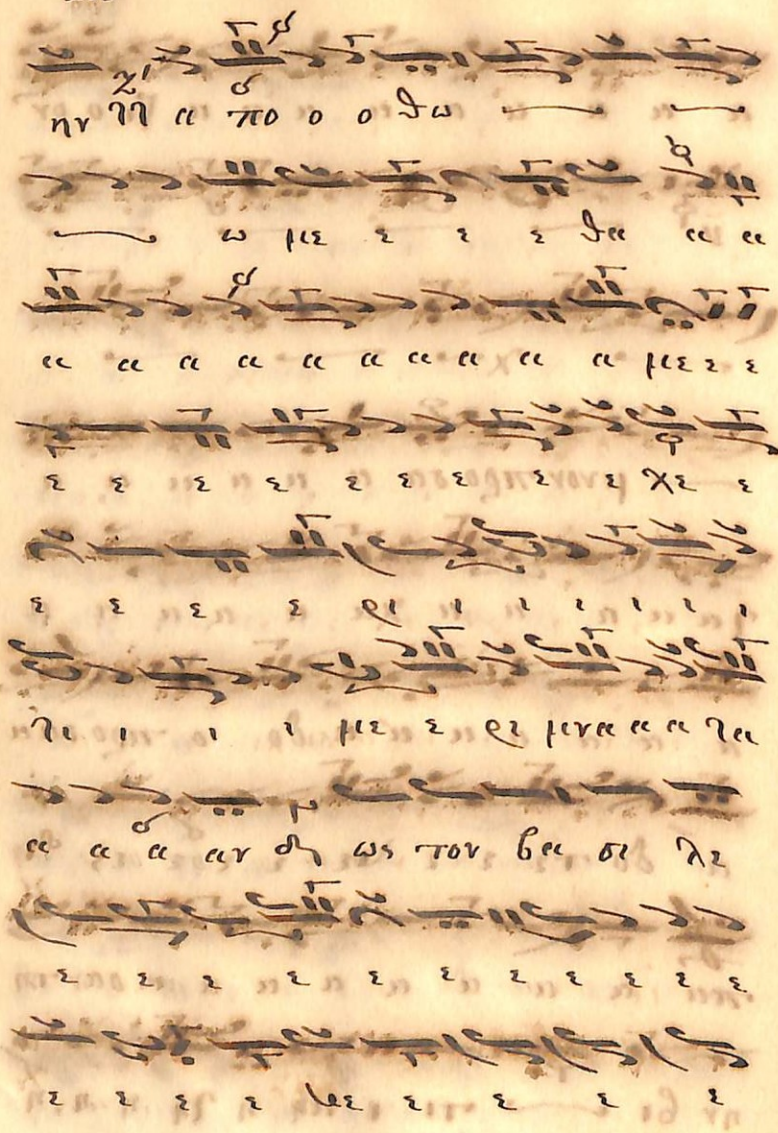 ην π α πο ο ο θω
ω με ε ε ε θα α α
α α α α α α α α α α με ε ε
ε ε ε ε ε ε ε ε ε χε ε
ε ε ε ε ρι ι ι ι ι ι ι
τι ι ι ι με ε ρι μνα α α τα
α α α αν ως τον βα σι λε
ε ε ε ε ε ε ε ε ε ε
ε ε ε ε ε ε ε ε